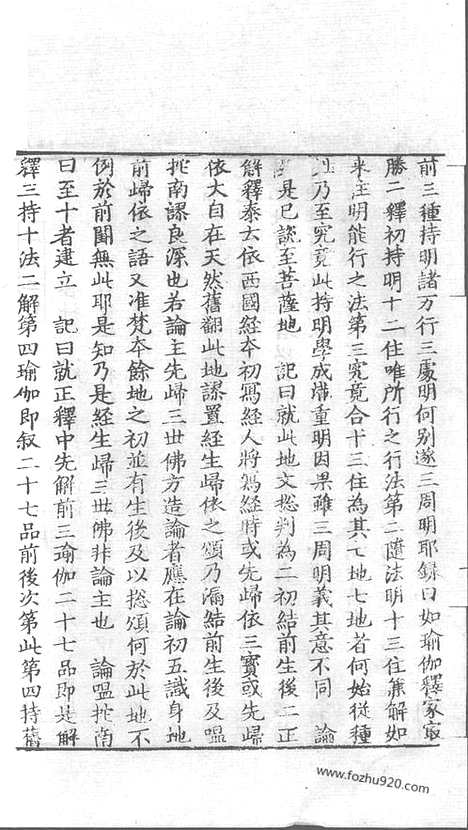 前三種持明諸万行三處明何别遂三周明耶録曰如瑜伽釋家㝡
勝二釋初持明十二住唯所行之行法第二隨法明十三住䒭解如
来注明能行之法第三究竟合十三住為其七地七地者何始従種
乃至究竟此持明學成㒵重明因果雖三周明義其意不同　論
是已說至菩薩地　記曰就此地文㧾判為二初結前生後二正
解釋泰云依西國経夲初寫経人將寫経時或先歸依三寳或先歸
依大自在天然舊翻此地謬置経生歸依之頌乃漏結前生後及嗢
柁南謬良深也若論主先歸三世佛方造論者應在論初五識身地
前歸依之語又准梵夲餘地之初並有生後及以㧾頌何於此地不
例於前闕無此耶是知乃是経生歸三世佛非論主也　論嗢柁南
曰至十者建立　記曰就正釋中先解前三瑜伽二十七品即是解
釋三持十法二解第四瑜伽即叙二十七品前後次第此第四持舊
www.fozhu920.com